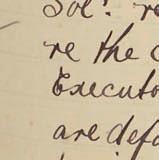 Sol^r. re
re the C
Executo
are defa